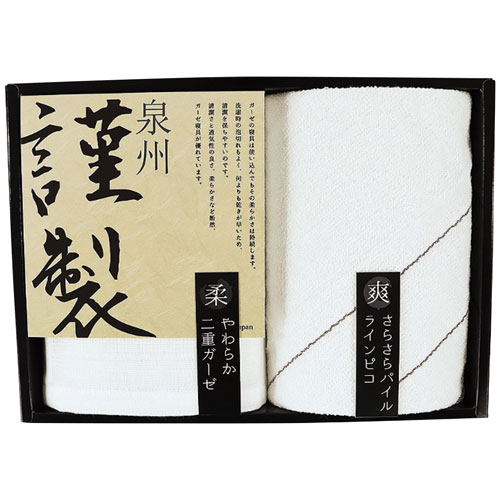 泉州
謹製
ガーゼの寝具は使い込んでもその柔らかさは持続します。
洗濯時の泡切れもよく、何よりも乾きが早いため、
清潔を保ちやすいのです。
清潔さと通気性の良さ、柔らかさなど断然、
ガーゼ寝具が優れています。
apan
柔
やわらか
二重ガーゼ
爽
さらさらパイル
ラインピコ